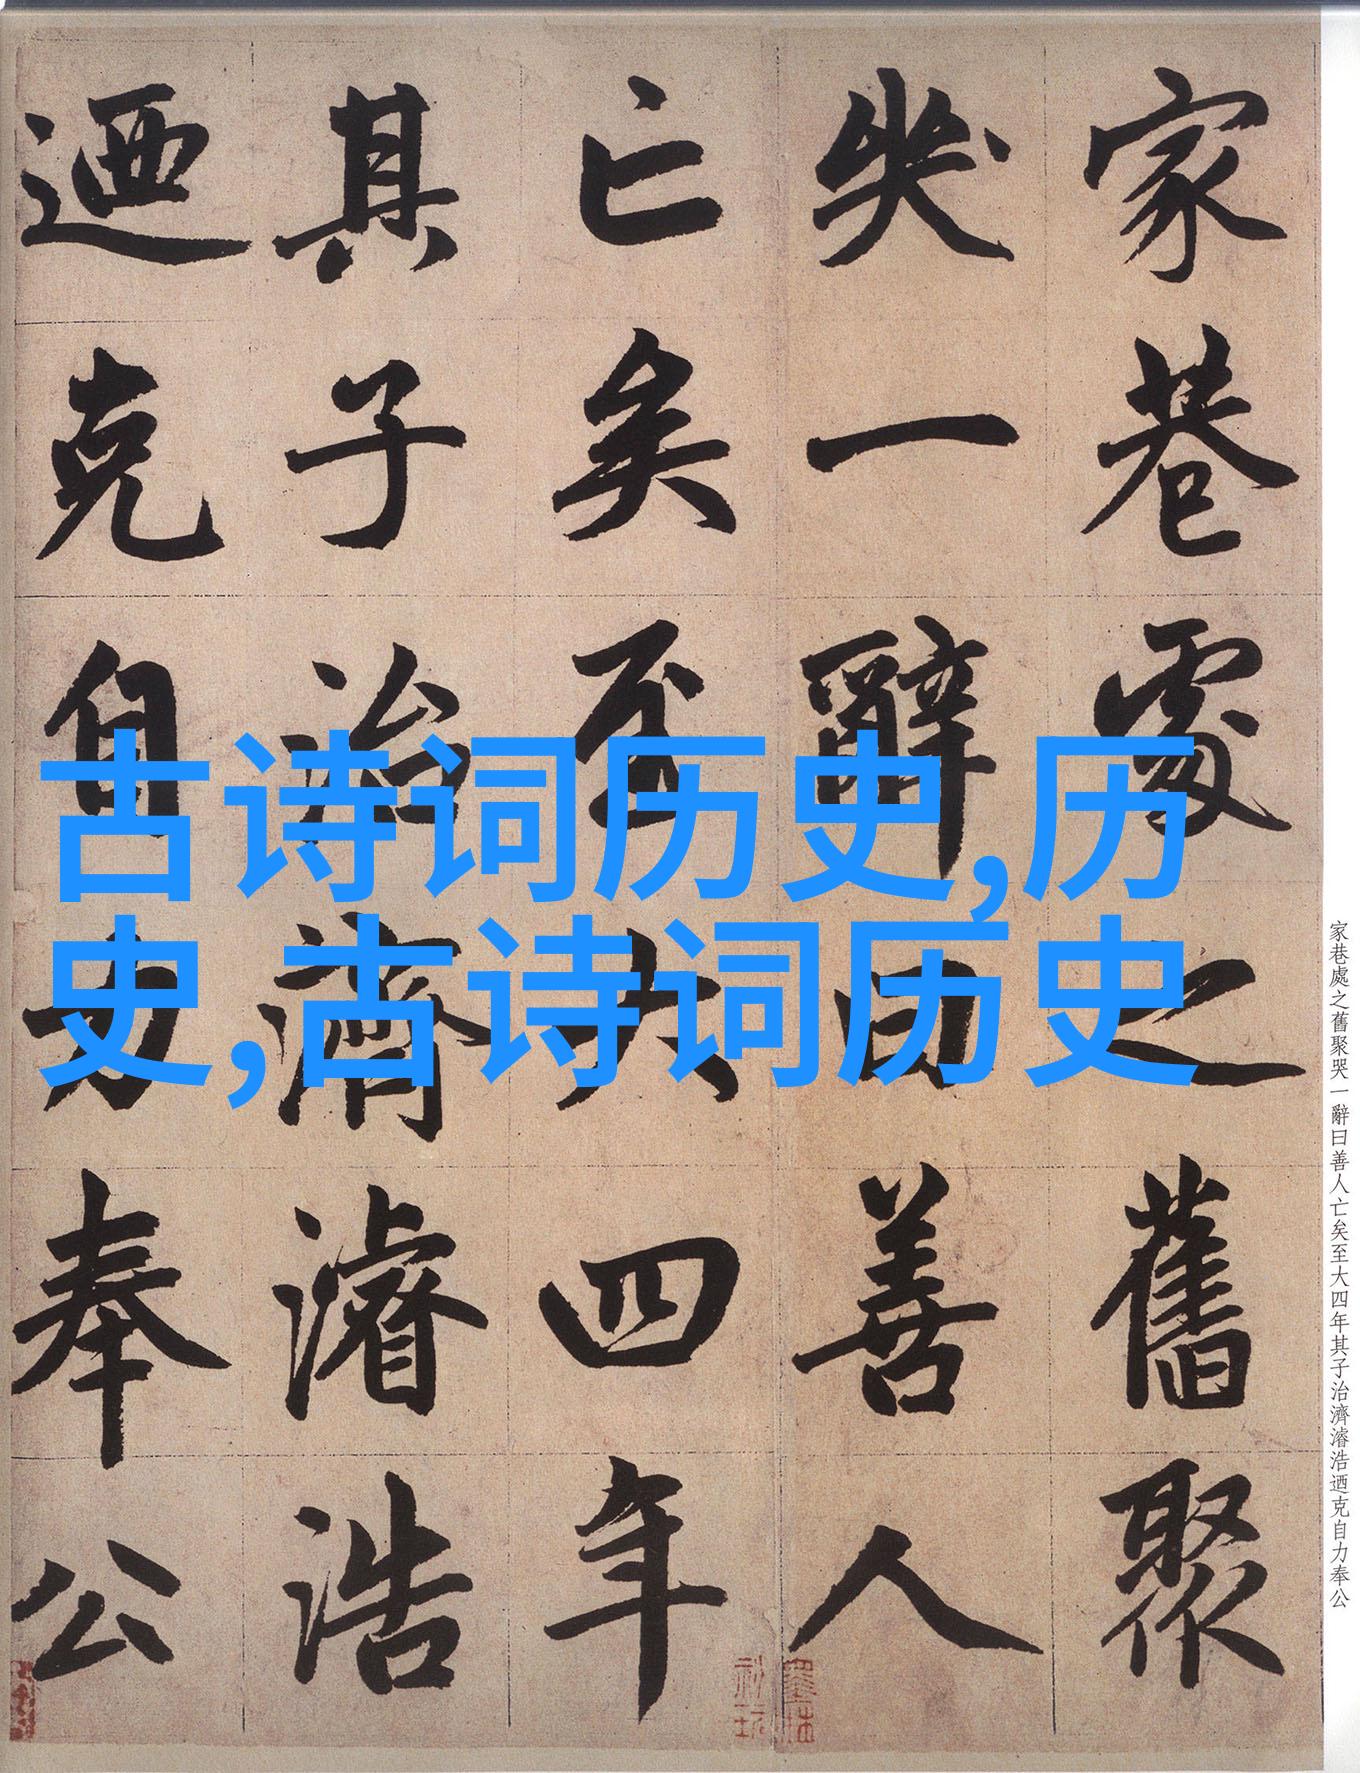 家巷處之舊聚
哭一辭曰善人
亡矣至大四年
其子治濟濬浩
迺克自力奉公
古诗词历史,历
史,古诗词历史
家巷處之舊聚哭一辭曰善人亡矣至大四年其子治濟濬浩迺克自力奉公
墨林
秘玩